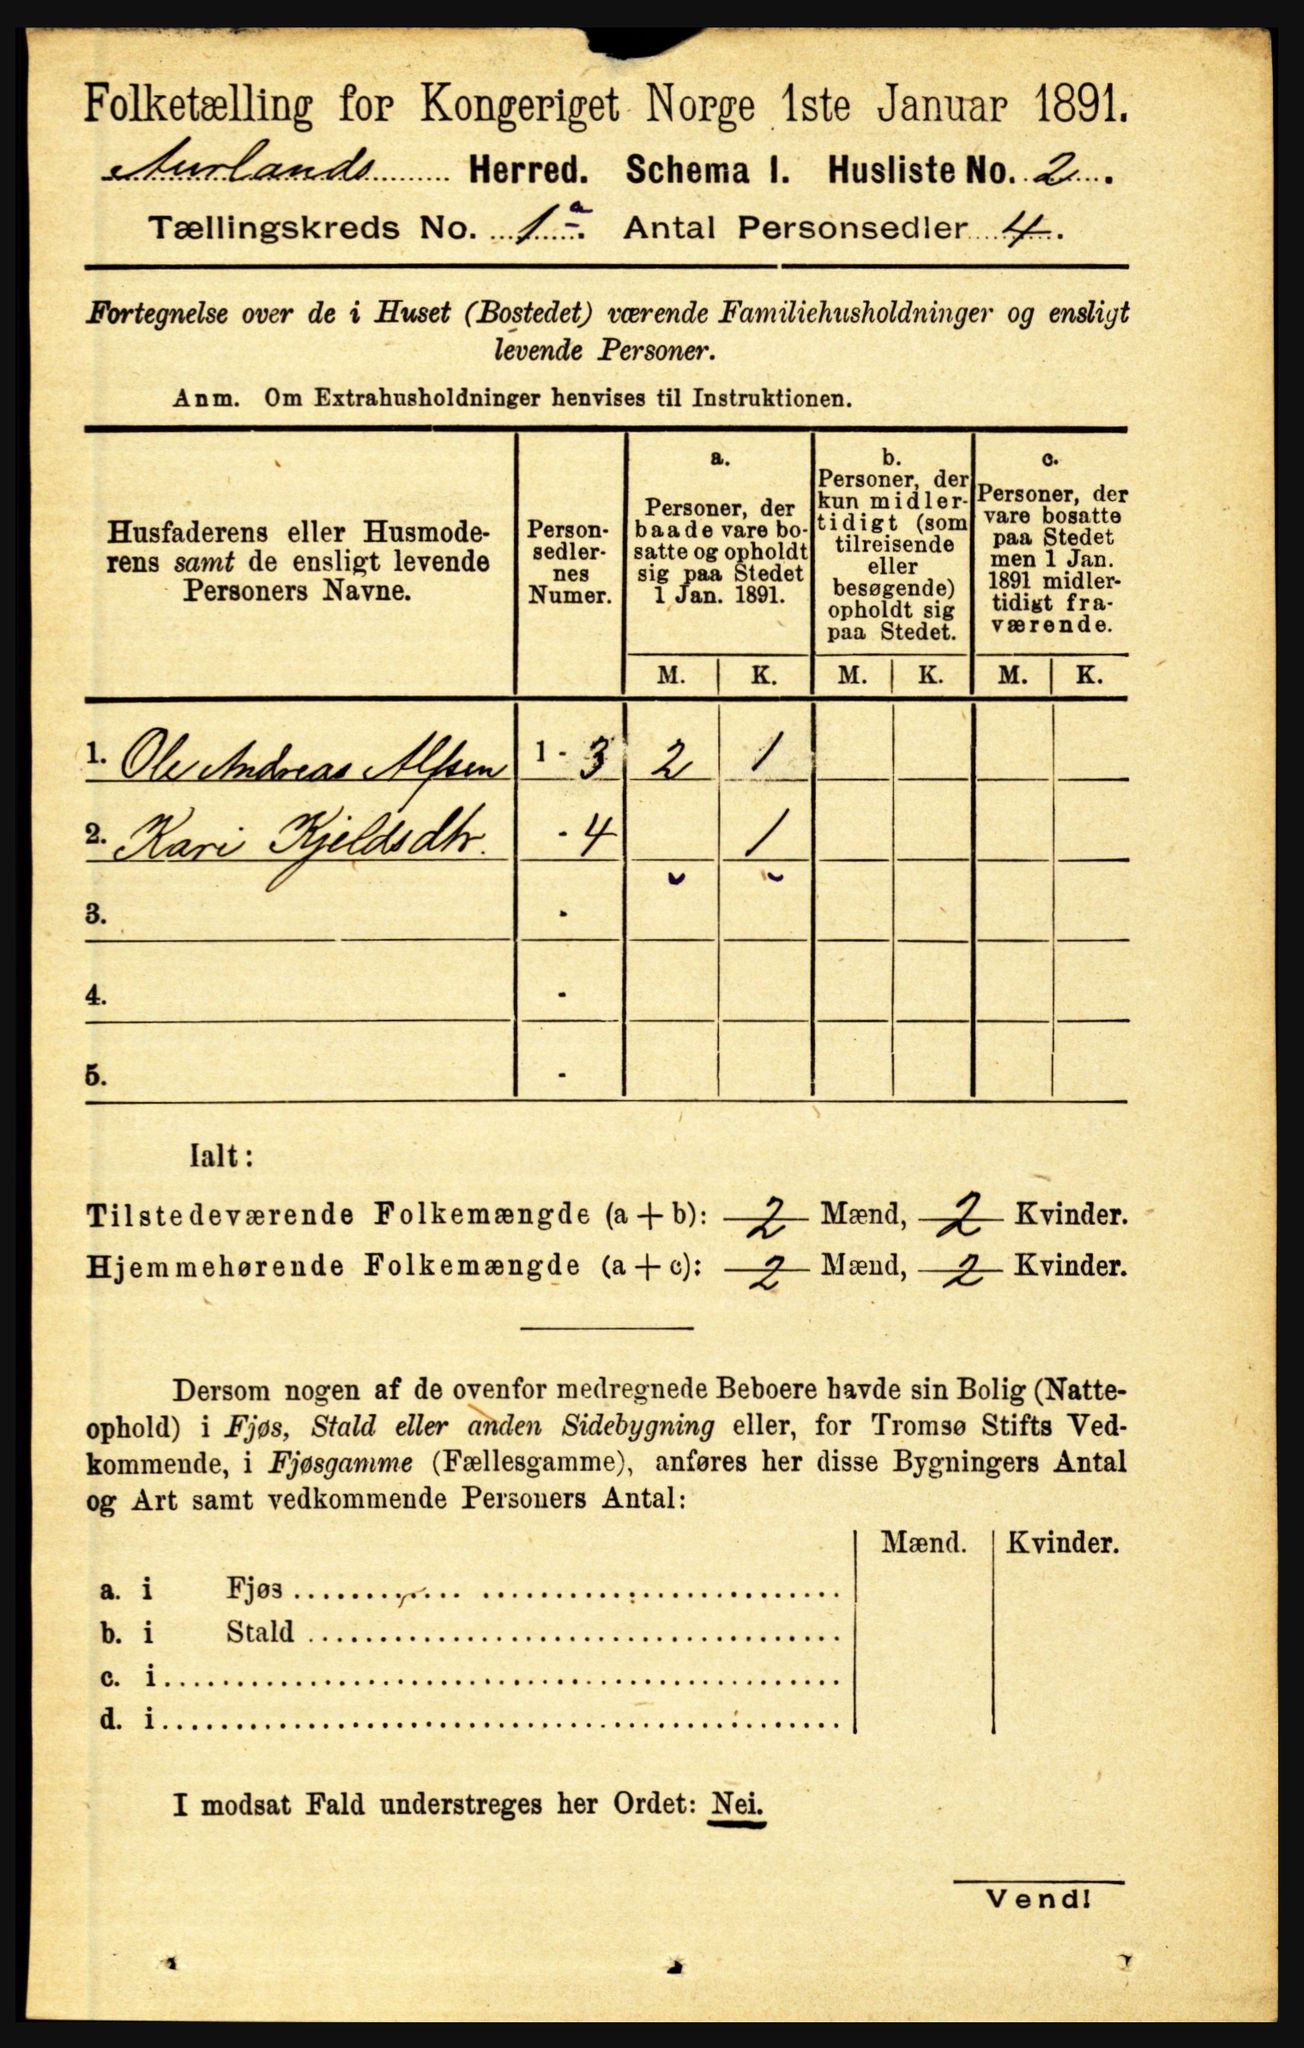 Folketælling for Kongeriget Norge 1ste Januar 1891.
Aurlands Herred. Schema I. Husliste No. 2.
Tællingskreds No. 1a. Antal Personsedler 4.
Fortegnelse over de i Huset (Bostedet) værende Familiehusholdninger og ensligt
levende Personer.
Anm. Om Extrahusholdninger henvises til Instruktionen.
Husfaderens eller Husmode-
rens samt de ensligt levende
Personers Navne.
Person-
sedler-
nes
Numer.
a.
Personer, der
baade vare bo-
satte og opholdt
sig paa Stedet
1 Jan. 1891.
b.
Personer, der
kun midler-
tidigt (som
tilreisende
eller
besøgende)
opholdt sig
paa Stedet.
c.
Personer, der
vare bosatte
paa Stedet
men 1 Jan.
1891 midler-
tidigt fra-
værende.
M. K. M. K. M. K.
1. Ole Andreas Alfsen 1 - 3 2 1
2. Kari Kjeldsdtr. - 4 1
3. -
4. -
5. -
Ialt:
Tilstedeværende Folkemængde (a + b): 2 Mænd, 2 Kvinder.
Hjemmehørende Folkemængde (a + c): 2 Mænd, 2 Kvinder.
Dersom nogen af de ovenfor medregnede Beboere havde sin Bolig (Natte-
ophold) i Fjøs, Stald eller anden Sidebygning eller, for Tromsø Stifts Ved-
kommende, i Fjøsgamme (Fællesgamme), anføres her disse Bygningers Antal
og Art samt vedkommende Personers Antal:
Mænd. Kvinder.
a. i Fjøs
b. i Stald
c. i
d. i
I modsat Fald understreges her Ordet: Nei.
Vend!